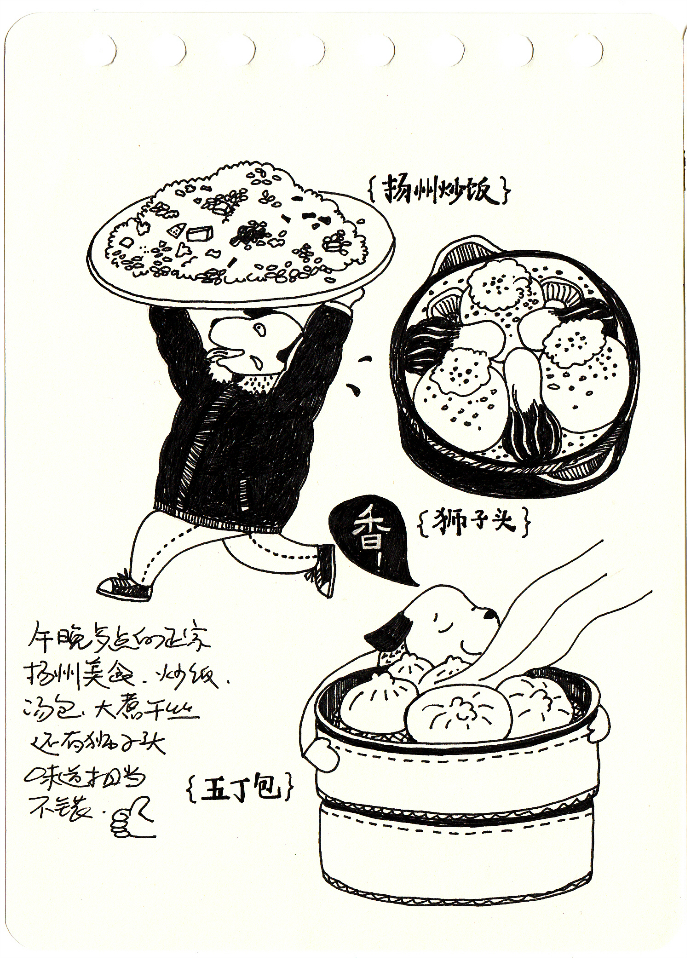 {扬州炒饭}
{狮子头}
香!
午晚多点的正宗
扬州美食.炒饭.
汤包.大煮干丝
还有狮子头
味道相当
不错.
{五丁包}